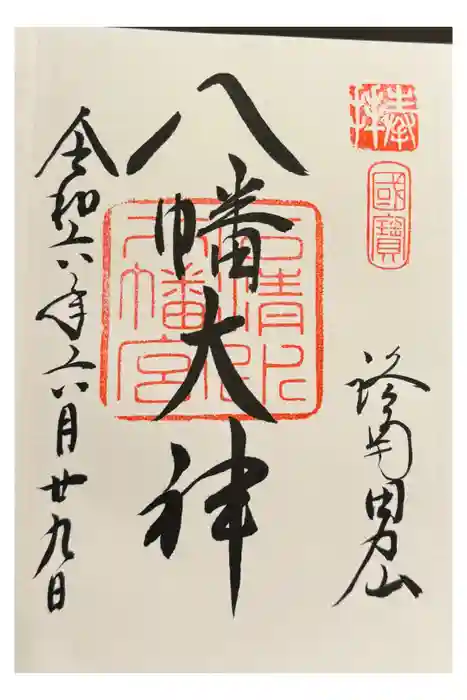 奉拝
國寶
洛南男山
八幡大神
石清水八幡宮
令和六年六月廿九日